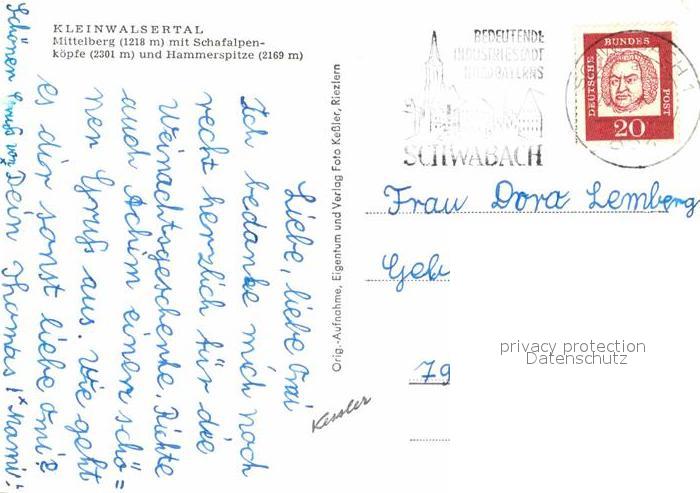 KLEINWALSERTAL
Mittelberg (1218 m) mit Schafalpen-
köpfe (2301 m) und Hammerspitze (2169 m)
BEDEUTENDE
INDUSTRIESTADT
NORDBAYERNS
SCHWABACH
DEUTSCHE
BUNDES
POST
20
Frau Dora Lemberg
Geb
79
privacy protection
Datenschutz
Kessler
Orig.-Aufnahme, Eigentum und Verlag Foto Keßler, Riezlern
Liebe, liebe Omi
Ich bedanke mich noch
recht herzlich für die
Weinachtsgeschenke. Richte
auch Achim einen schö=
nen Gruß aus. Wie geht
es dir sonst liebe Omi?
Dein Thomas!
Schönen Gruß von
Mami!